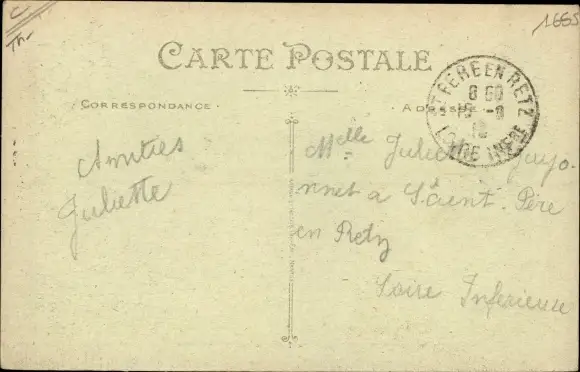 1665
CARTE POSTALE
CORRESPONDANCE
ADRESSE
ST PERE EN RETZ
8 60
15 -9
LOIRE INFRE
Amitiés
Juliette
Melle Juliette Guyo.
nnet a Saint. Père
en Retz
Loire Inferieure